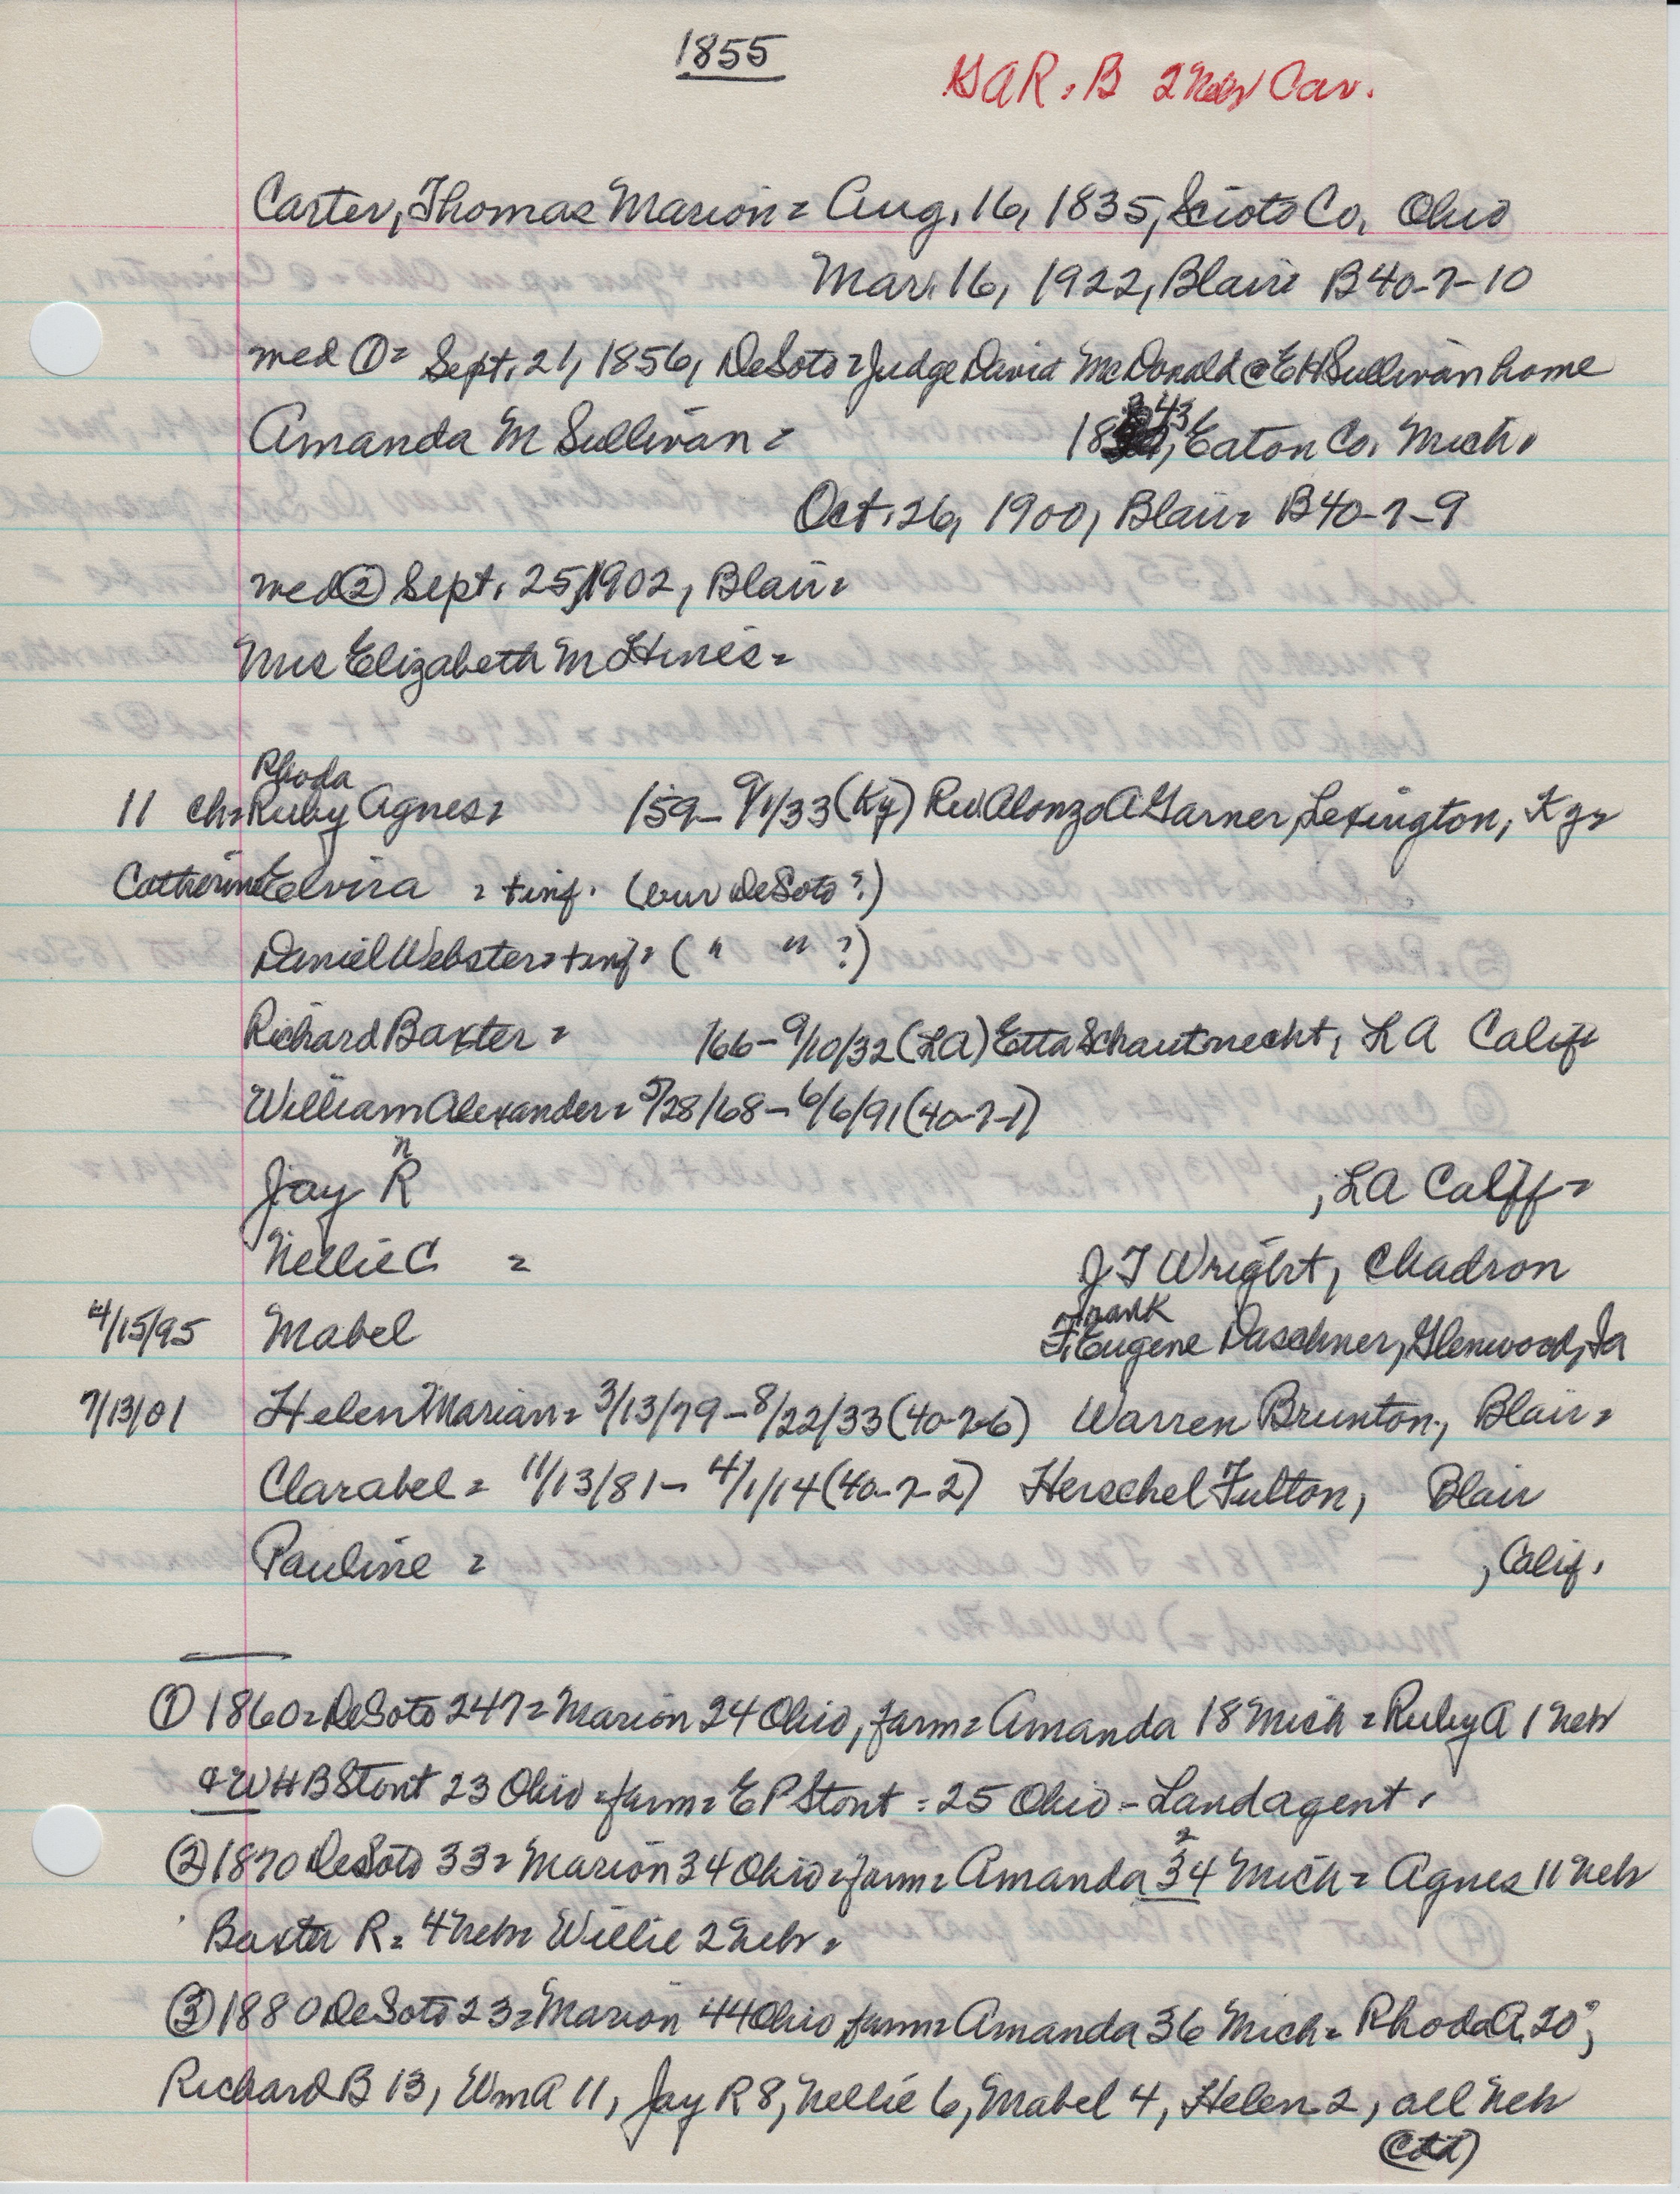 1855
GAR = B 2 Nebr Cav.
Carter, Thomas Marion = Aug. 16, 1835, Scioto Co, Ohio
Mar. 16, 1922, Blair = B40-7-10
med ① = Sept. 21, 1856, DeSoto = Judge David McDonald @ EH Sullivan home
Amanda M Sullivan = 1843, Eaton Co. Mich.
Oct. 26, 1900, Blair = B40-7-9
med ② Sept. 25, 1902, Blair =
Mrs Elizabeth M Hines =
Rhoda
11 ch = Ruby Agnes = /59 - 9/1/33 (Ky) Rev. Alonzo A Garner, Lexington, Ky =
Catherine Elvira = + inf. (bur DeSoto ?)
Daniel Webster = + inf = ( " " ?)
Richard Baxter = /66 - 9/10/32 (LA) Etta Schautnecht, LA Calif
William Alexander = 5/28/68 - 6/6/91 (40-7-1)
n
Jay R , LA Calif =
Nellie C = J T Wright, Chadron
Frank
4/15/95 Mabel F. Eugene Daschner, Glenwood, Ia
7/13/01 Helen Marian = 3/13/79 - 8/22/33 (40-7-6) Warren Brunton, Blair =
Clarabel = 11/13/81 - 4/1/14 (40-7-2) Herschel Fulton, Blair
Pauline = , Calif.
① 1860 = DeSoto 247 = Marion 24 Ohio, farm = Amanda 18 Mich = Ruby A 1 Nebr
& WHB Stout 23 Ohio = farm = E P Stout = 25 Ohio - Land agent.
2
② 1870 DeSoto 33 = Marion 34 Ohio = farm = Amanda 34 Mich = Agnes 11 Nebr
Baxter R = 4 Nebr = Willie 2 Nebr =
③ 1880 DeSoto 23 = Marion 44 Ohio farm = Amanda 36 Mich = Rhoda A. 20,
Richard B 13, Wm A 11, Jay R 8, Nellie 6, Mabel 4, Helen 2, all Nebr